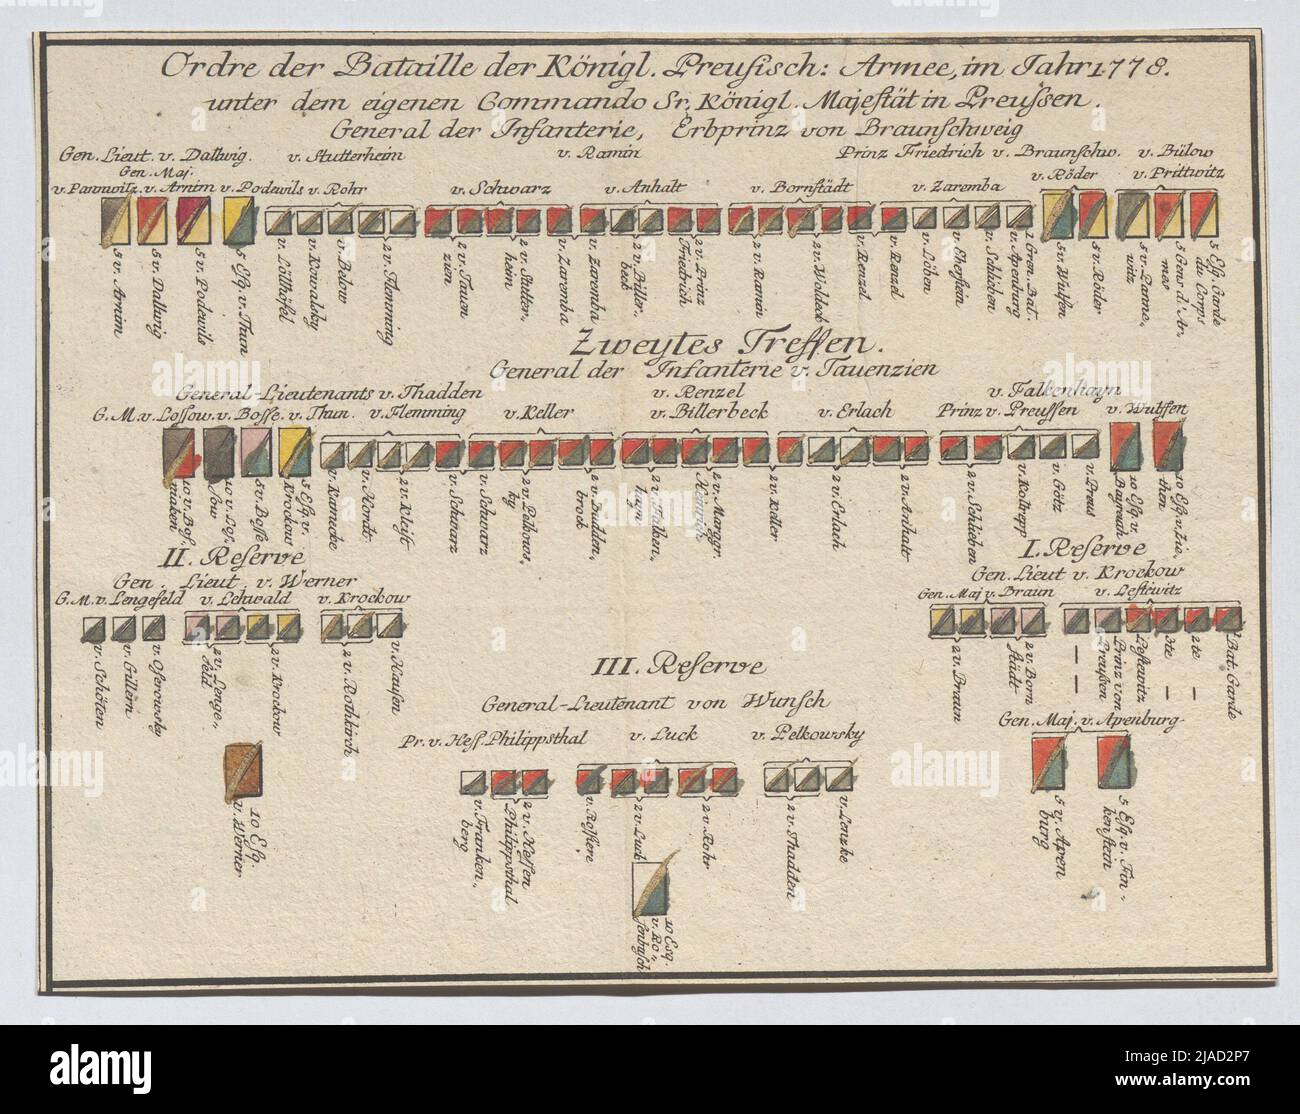 Ordre der Bataille der Königl. Preusisch: Armee, im Jahr 1778.
unter dem eigenen Commando Sr. Königl. Majestät in Preussen.
General der Infanterie, Erbprinz von Braunschweig
Gen. Lieut. v. Dallwig. v. Stutterheim v. Ramin Prinz Friedrich v. Braunschw. v. Bülow
Gen. Maj.
v. Pannwitz. v. Arnim v. Podewils v. Rohr v. Schwarz v. Anhalt v. Bornstädt v. Zaremba v. Röder v. Prittwitz
5 v. Arnim
5 v. Dallwig
5 v. Podewils
5 Esq. v. Thun
v. Löllhöfel
v. Kowalsky
v. Below
2 v. Flemming
2 v. Tauen zien
2 v. Stutter, heim
v. Zaremba
v. Zaremba
2 v. Biller, beck
2 v. Prinz Friedrich
2 v. Ramin
2 v. Woldeck
v. Renzel
v. Renzel
v. Löben
v. Eberstein
v. Schlieben
v. Apenburg
1 Gren. Bat.
5 v. Wulfen
5 v. Röder
5 v. Panne, witz
5 Gens d'Ar, mes
5 Esq. Garde du Corps
Zweytes Treffen.
General der Infanterie v. Tauenzien
General-Lieutenants v. Thadden v. Renzel v. Falkenhayn
G. M. v. Lossow. v. Bosse. v. Thun. v. Flemming v. Keller v. Billerbeck v. Erlach Prinz v. Preussen v. Wulffen
10 v. Bos, niaken
10 v. Los, sow
5 v. Bosse
5 Esq. v. Krockow
v. Kamecke
v. Hordt
2 v. Kleist
v. Schwarz
v. Schwarz
2 v. Pelkows, ky
2 v. Budden, brock
2 v. Falken, hayn
2 v. Marggr. Heinrich
2 v. Keller
2 v. Erlach
2 v. Anhalt
2 v. Schlieben
v. Kottepp
v. Götz
v. Preus
10 Esq. v. Bayreuth
10 Esq. v. Zie, then
II. Reserve
Gen. Lieut. v. Werner
G. M. v. Lengefeld v. Lehwald v. Krockow
v. Schöten
v. Gillern
v. Oserowsky
2 v. Lenge, feld
2 v. Krockow
2 v. Rothkirch
v. Hausen
10 Esq. v. Werner
I. Reserve
Gen. Lieut v. Krockow
Gen. Maj v. Braun v. Lestewitz
2 v. Braun
2 v. Born städt
Prinz von Preußen
Lestewitz
3te
2te
1 Bat. Garde
Gen. Maj. v. Apenburg
5 v. Apen burg
5 Esq. v. Fin- kenstein
III. Reserve
General-Lieutenant von Wunsch
Pr. v. Hess. Philippsthal v. Luck v. Pelkowsky
v. Franken, berg
2 v. Hessen Philippsthal
v. Rossiere
2 v. Luck
2 v. Rohr
2 v. Thadden
v. Lenzke
10 Esq. v. Ro,, senbusch
alamy
Image ID: 2JAD2P7
www.alamy.com